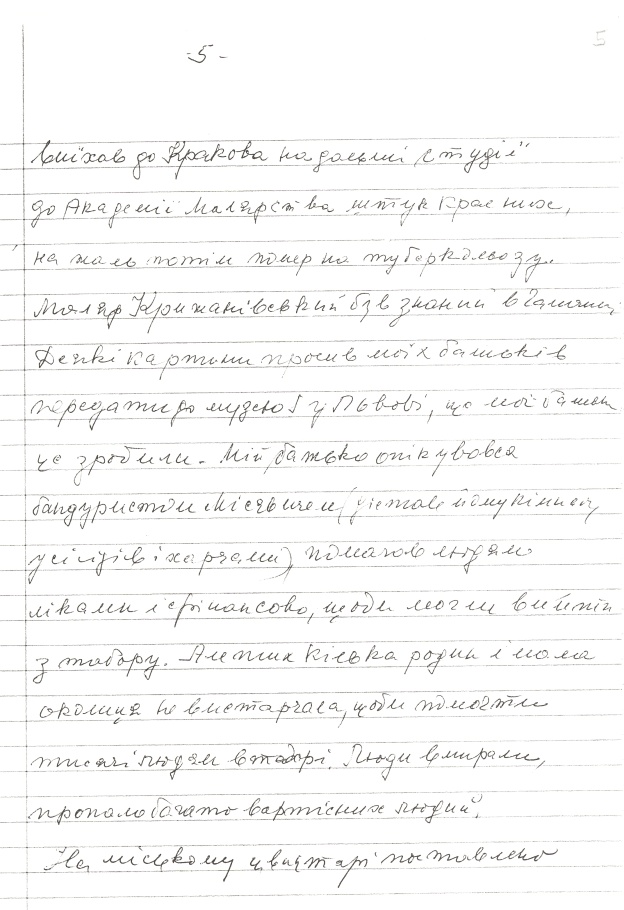 -5-
5
виїхав до Кракова на дальші студії
до Академії Малярства штук красних,
на жаль потім помер на туберкольозу.
Маляр Крижанівський був знаний в Галичині
Деякі картини просив моїх батьків
передати до музею у Львові, що мої батьки
це зробили. Мій батько опікувався
бандуристом Місевичем (дістав йому кімнату,
усіх їхарчами), помагав людям
ліками і фінансово, щоби могли вийти
з табору. Але тих кілька родин і мала
околиця не вистарчала, щоби помогти
тисячі людям в таборі. Люди вмирали,
пропало багато вартісних людий.
На міському цвинтарі поставлено